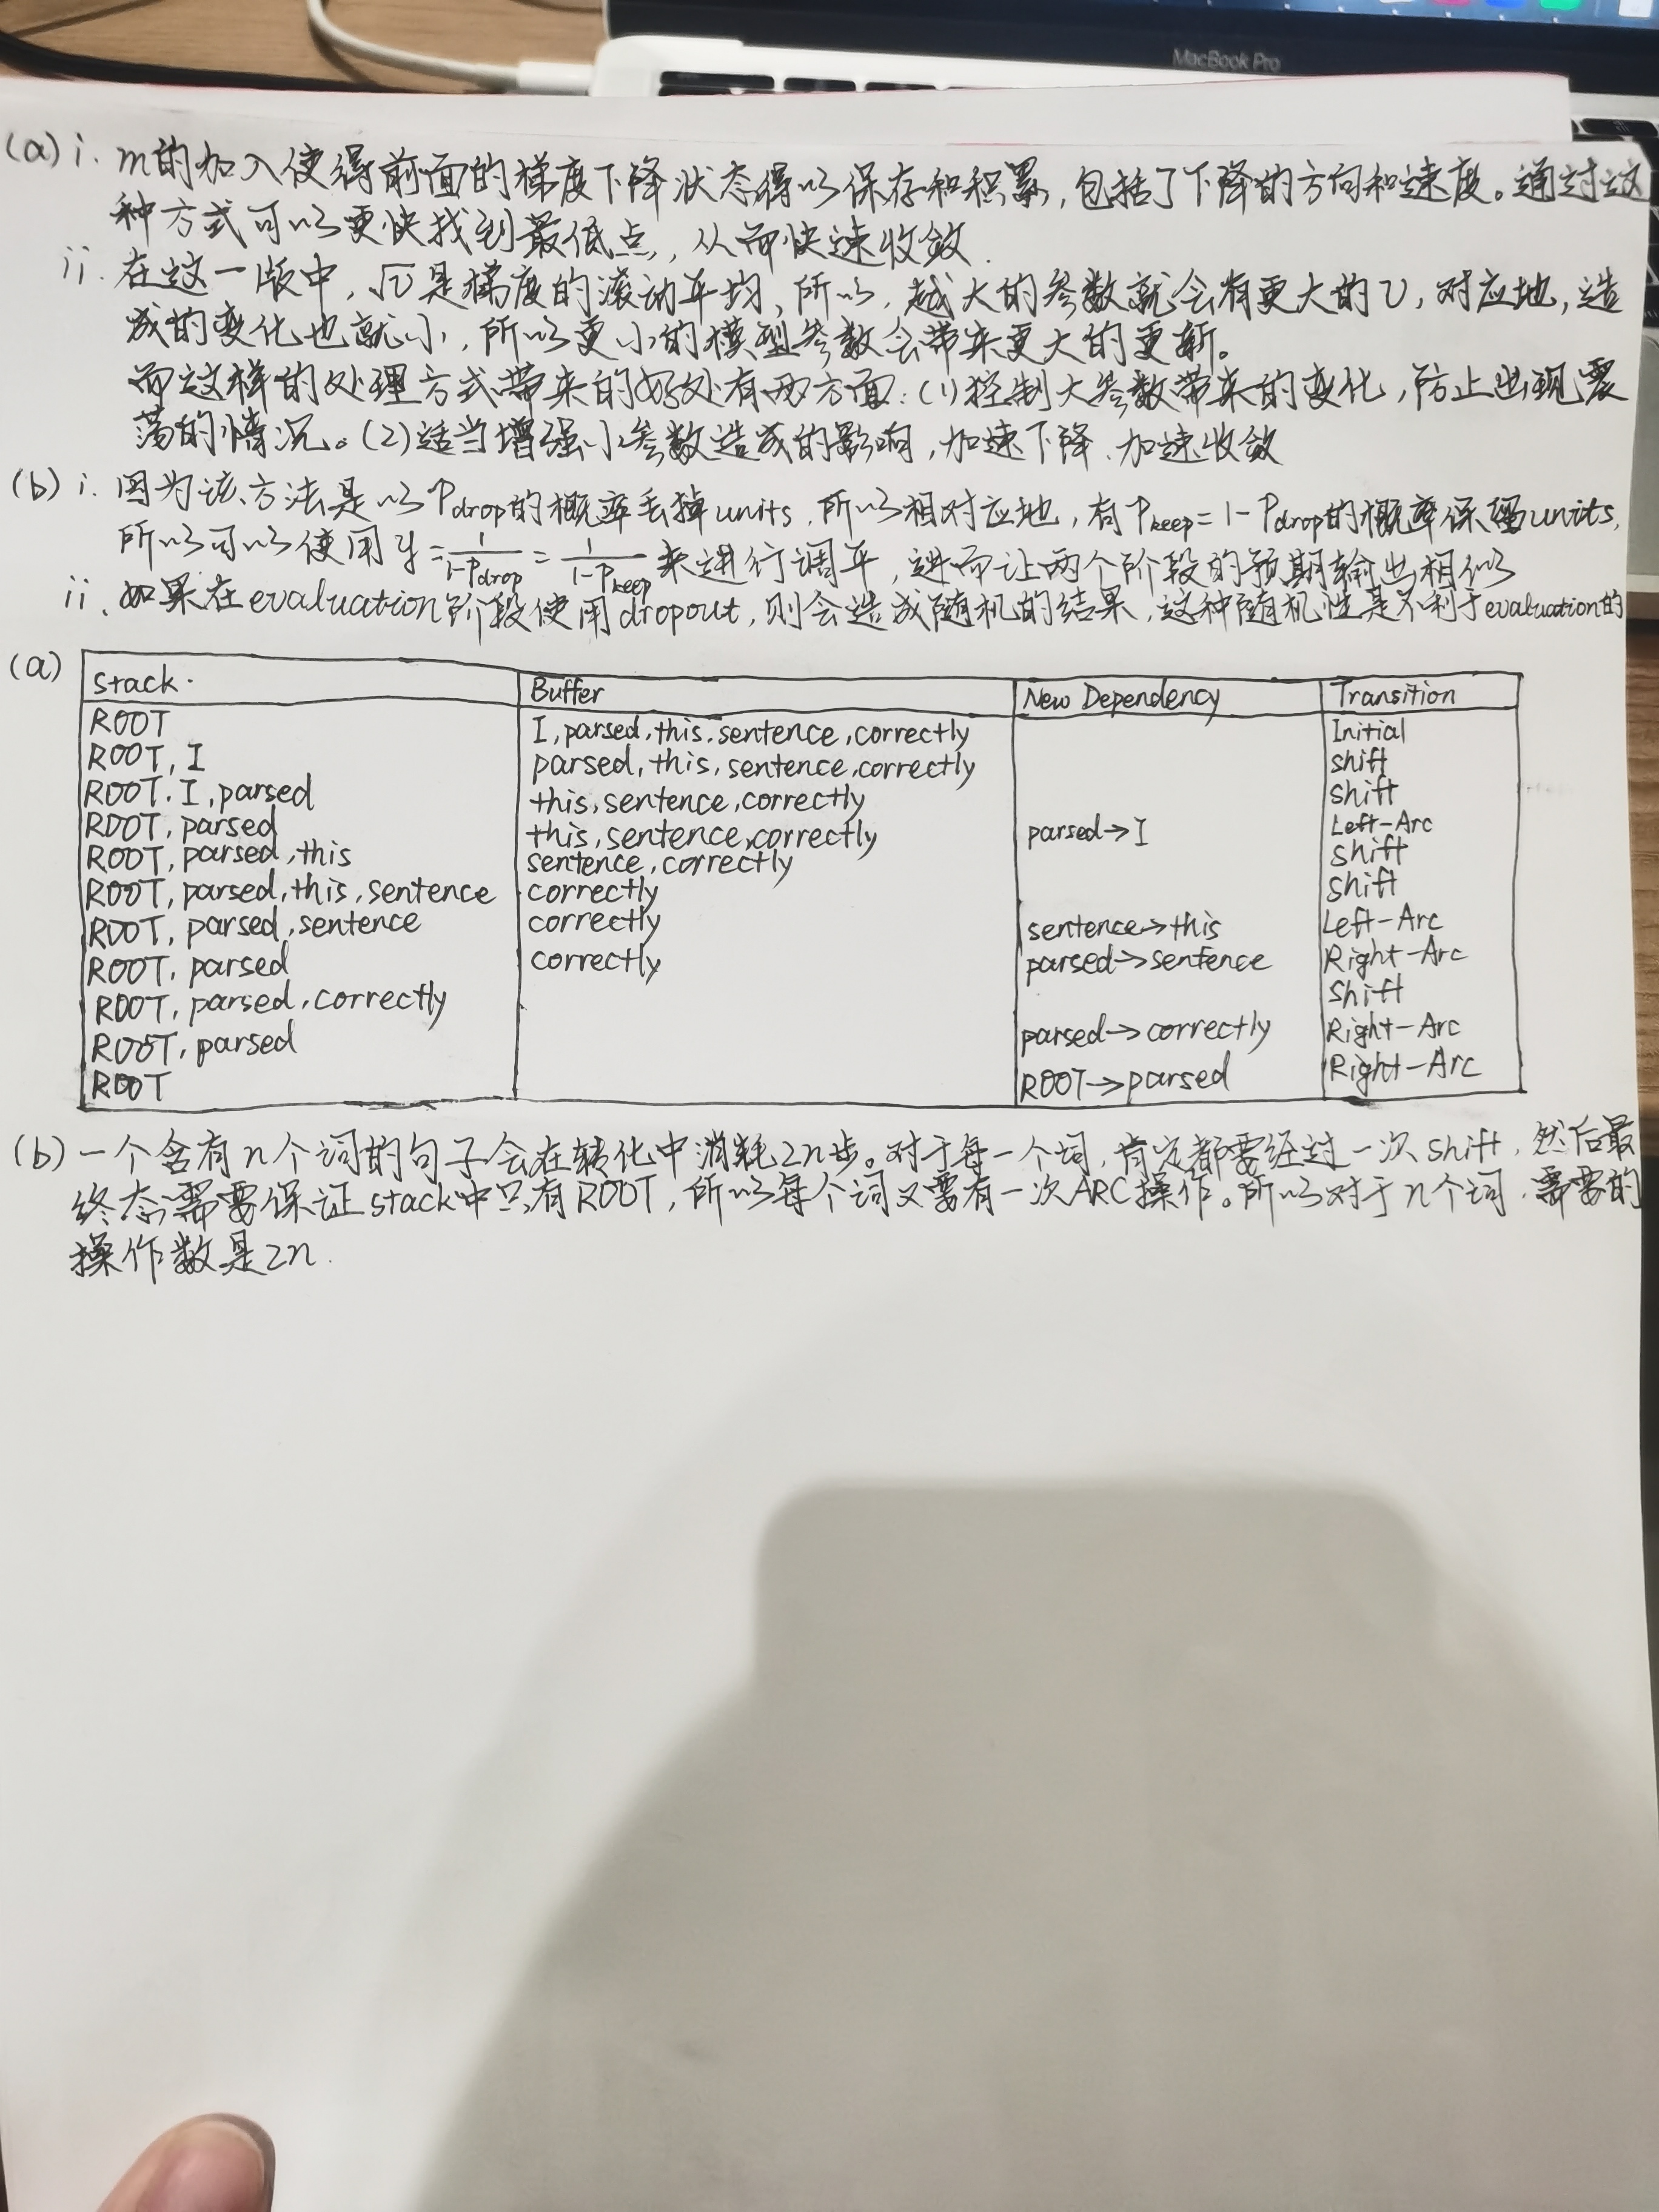 MacBook Pro
(a) i. m的加入使得前面的梯度下降状态得以保存和积累,包括了下降的方向和速度。通过这
种方式可以更快找到最低点,从而快速收敛.
ii. 在这一版中,√v是梯度的滚动平均,所以,越大的参数就会有更大的v,对应地,造
成的变化也就小,所以更小的模型参数会带来更大的更新。
而这样的处理方式带来的好处有两方面:(1)控制大参数带来的变化,防止出现震
荡的情况。(2)适当增强小参数造成的影响,加速下降,加速收敛
(b) i. 因为该方法是以Pdrop的概率丢掉units,所以相对应地,有Pkeep=1-Pdrop的概率保留units,
所以可以使用γ=1/(1-Pdrop)=1/(1-Pkeep)来进行调平,进而让两个阶段的预期输出相似
ii、如果在evaluation阶段使用dropout,则会造成随机的结果,这种随机性是不利于evaluation的
(a) Stack. Buffer New Dependency Transition
ROOT I,parsed,this,sentence,correctly Initial
ROOT, I parsed,this,sentence,correctly shift
ROOT, I, parsed this,sentence,correctly shift
ROOT, parsed this,sentence,correctly parsed→I Left-Arc
ROOT, parsed,this sentence,correctly shift
ROOT, parsed,this,sentence correctly shift
ROOT, parsed,sentence correctly sentence→this Left-Arc
ROOT, parsed correctly parsed→sentence Right-Arc
ROOT, parsed,correctly shift
ROOT, parsed parsed→correctly Right-Arc
ROOT ROOT→parsed Right-Arc
(b) 一个含有n个词的句子会在转化中消耗2n步。对于每一个词,肯定都要经过一次shift,然后最
终态需要保证stack中只有ROOT,所以每个词又要有一次ARC操作。所以对于n个词,需要的
操作数是2n.